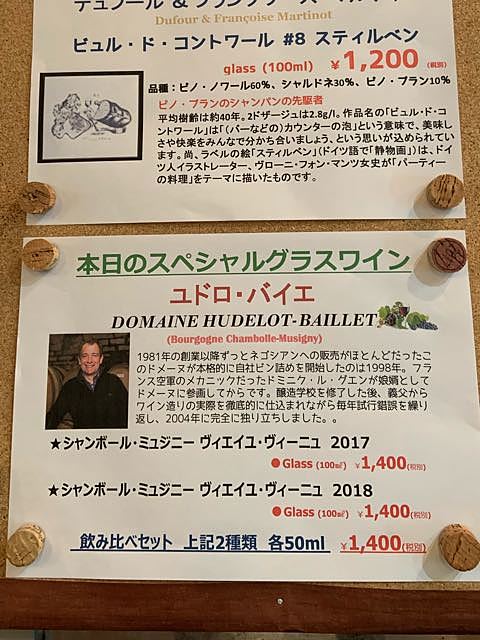 Dufour & Françoise Martinot
ビュル・ド・コントワール #8 スティルベン
glass (100ml) ￥1,200 (税別)
品種：ピノ・ノワール60%、シャルドネ30%、ピノ・ブラン10%
ピノ・ブランのシャンパンの先駆者
平均樹齢は約40年。2ドザージュは2.8g/l。作品名の「ビュル・ド・コ
ントワール」は「(バーなどの)カウンターの泡」という意味で、美味し
さや快楽をみんなで分かち合いましょう、という思いが込められてい
ます。尚、ラベルの絵「スティルベン」(ドイツ語で「静物画」)は、ドイ
ツ人イラストレーター、ヴローニ・フォン・マンツ女史が「パーティー
の料理」をテーマに描いたものです。
本日のスペシャルグラスワイン
ユドロ・バイエ
DOMAINE HUDELOT-BAILLET
(Bourgogne Chambolle-Musigny)
1981年の創業以降ずっとネゴシアンへの販売がほとんどだったこ
のドメーヌが本格的に自社ビン詰めを開始したのは1998年。フラ
ンス空軍のメカニックだったドミニク・ル・グエンが娘婿として
ドメーヌに参画してからです。醸造学校を修了した後、義父から
ワイン造りの実際を徹底的に仕込まれながら毎年試行錯誤を繰り
返し、2004年に完全に独り立ちしました。。
★シャンボール・ミュジニー ヴィエイユ・ヴィーニュ 2017
●Glass (100㎖) ￥1,400(税別)
★シャンボール・ミュジニー ヴィエイユ・ヴィーニュ 2018
●Glass (100㎖) ￥1,400(税別)
飲み比べセット 上記2種類 各50ml ￥1,400(税別)